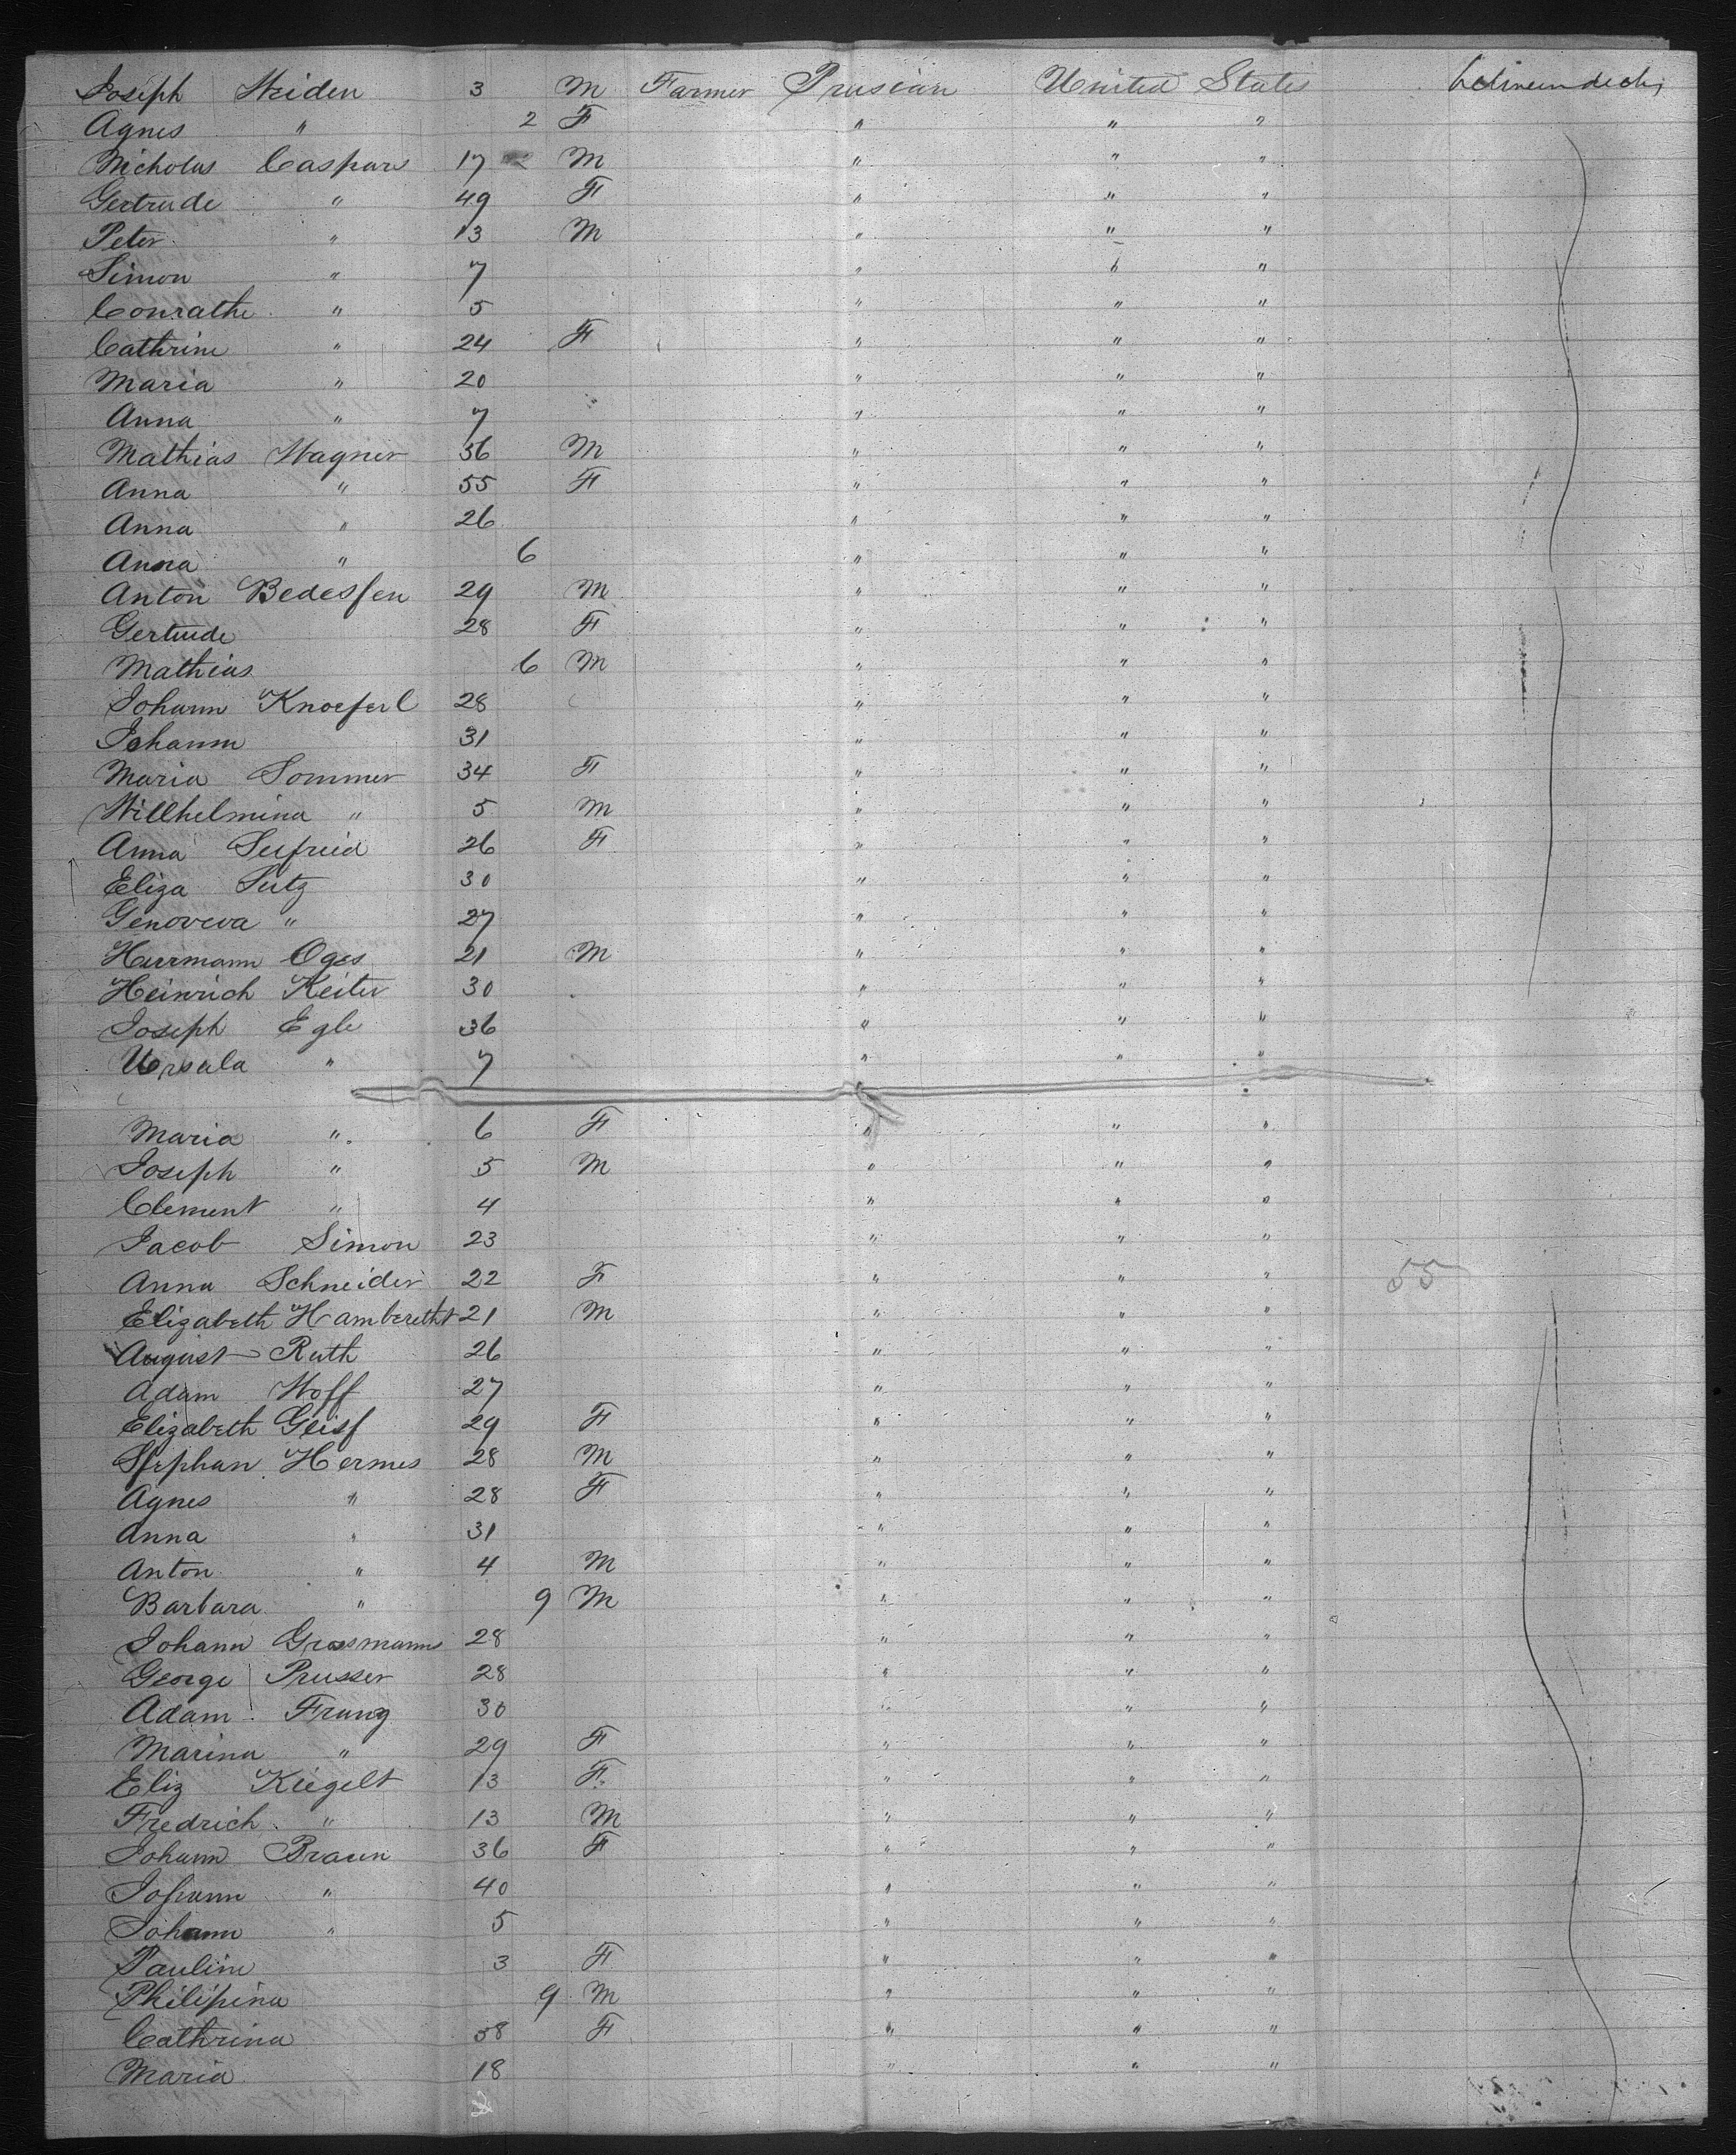 Joseph Weiden 3 M Farmer Prusian United States between decks
Agnes " 2 F " " "
Nicholas Caspars 17 M " " "
Gertrude " 49 F " " "
Peter " 13 M " " "
Simon " 7 " " "
Conrathe " 5 " " "
Cathrine " 24 F " " "
Maria " 20 " " "
Anna " 7 " " "
Mathias Wagner 36 M " " "
Anna " 55 F " " "
Anna " 26 " " "
Anna " 6 " " "
Anton Bedessen 29 M " " "
Gertrude 28 F " " "
Mathias 6 M " " "
Johann Knoeferl 28 " " "
Johann 31 " " "
Maria Sommer 34 F " " "
Willhelmina " 5 M " " "
Anna Seifried 26 F " " "
Eliza Seitz 30 " " "
Genoveva " 27 " " "
Herrmann Oges 21 M " " "
Heinrich Keiter 30 " " "
Joseph Egle 36 " " "
Ursula " 7 " " "
Maria " 6 F " " "
Joseph " 5 M " " "
Clement " 4 " " "
Jacob Simon 23 " " "
Anna Schneider 22 F " " " 55
Elizabeth Hamberetht 21 M " " "
August Ruth 26 " " "
Adam Woff 27 " " "
Elizabeth Geiss 29 F " " "
Stephan Hermes 28 M " " "
Agnes " 28 F " " "
Anna " 31 " " "
Anton " 4 M " " "
Barbara " 9 M " " "
Johann Grossmann 28 " " "
George Prusser 28 " " "
Adam Franz 30 " " "
Marina " 29 F " " "
Eliz Kiegelt 13 F " " "
Fredrich " 13 M " " "
Johann Braun 36 F " " "
Johann " 40 " " "
Johann " 5 " " "
Pauline 3 F " " "
Philipina 9 M " " "
Cathrina 38 F " " "
Maria 18 " " "